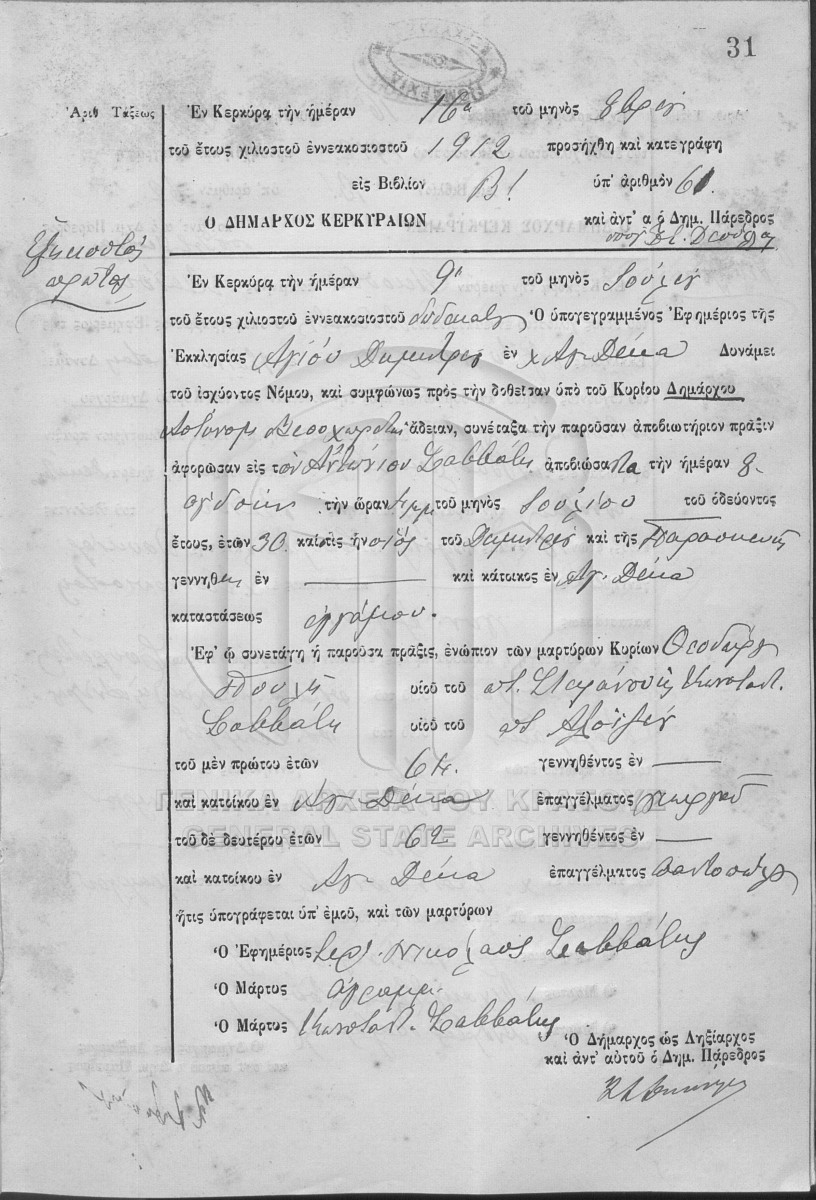 31
Ἀριθ Τάξεως
Ἐν Κερκύρᾳ τὴν ἡμέραν 16ην τοῦ μηνὸς 8βρίου
τοῦ ἔτους χιλιοστοῦ ἐννεακοσιοστοῦ 1912 προσήχθη καὶ κατεγράφη
εἰς Βιβλίον Β! ὑπ' ἀριθμὸν 61
Ο ΔΗΜΑΡΧΟΣ ΚΕΡΚΥΡΑΙΩΝ καὶ ἀντ' α ὁ Δημ. Πάρεδρος
Ἑξηκοστὸς
πρῶτος
Ἐν Κερκύρᾳ τὴν ἡμέραν 9ην τοῦ μηνὸς Ἰουλίου
τοῦ ἔτους χιλιοστοῦ ἐννεακοσιοστοῦ δωδεκάτου Ὁ ὑπογεγραμμένος Ἐφημέριος τῆς
Ἐκκλησίας Ἁγίου Δημητρίου ἐν χ Ἁγ. Δέκα Δυνάμει
τοῦ ἰσχύοντος Νόμου, καὶ συμφώνως πρὸς τὴν δοθεῖσαν ὑπὸ τοῦ Κυρίου Δημάρχου
ἄδειαν, συνέταξα τὴν παροῦσαν ἀποβιωτήριον πρᾶξιν
ἀφορῶσαν εἰς τὸν Ἀντώνιον Σαββάτην ἀποβιώσαντα τὴν ἡμέραν 8
ὀγδόην τὴν ὥραν τοῦ μηνὸς Ἰουλίου τοῦ ὁδεύοντος
ἔτους, ἐτῶν 30 καὶ τις ἦν υἱὸς τοῦ Δημητρίου καὶ τῆς Παρασκευῆς
γεννηθεὶς ἐν — καὶ κάτοικος ἐν Ἁγ. Δέκα
καταστάσεως ἀγάμου.
Ἐφ' ᾧ συνετάγη ἡ παροῦσα πρᾶξις, ἐνώπιον τῶν μαρτύρων Κυρίων Θεοδώρου
υἱοῦ τοῦ ποτ. Στεμάνου καὶ Κωνσταντ.
Σαββάτη υἱοῦ τοῦ ποτ
τοῦ μὲν πρώτου ἐτῶν 64. γεννηθέντος ἐν —
καὶ κατοίκου ἐν Ἁγ. Δέκα ἐπαγγέλματος γεωργοῦ
ΓΕΝΙΚΑ ΑΡΧΕΙΑ ΤΟΥ ΚΡΑΤΟΥΣ
GENERAL STATE ARCHIVES
τοῦ δὲ δευτέρου ἐτῶν 62 γεννηθέντος ἐν —
καὶ κατοίκου ἐν Ἁγ. Δέκα ἐπαγγέλματος παντοπώλου
ἥτις ὑπογράφεται ὑπ' ἐμοῦ, καὶ τῶν μαρτύρων
Ὁ Ἐφημέριος Ἱερ. Νικόλαος Σαββάτης
Ὁ Μάρτυς ἀγραμμ.
Ὁ Μάρτυς Κωνσταντ. Σαββάτης
Ὁ Δήμαρχος ὡς Ληξίαρχος
καὶ ἀντ' αὐτοῦ ὁ Δημ. Πάρεδρος